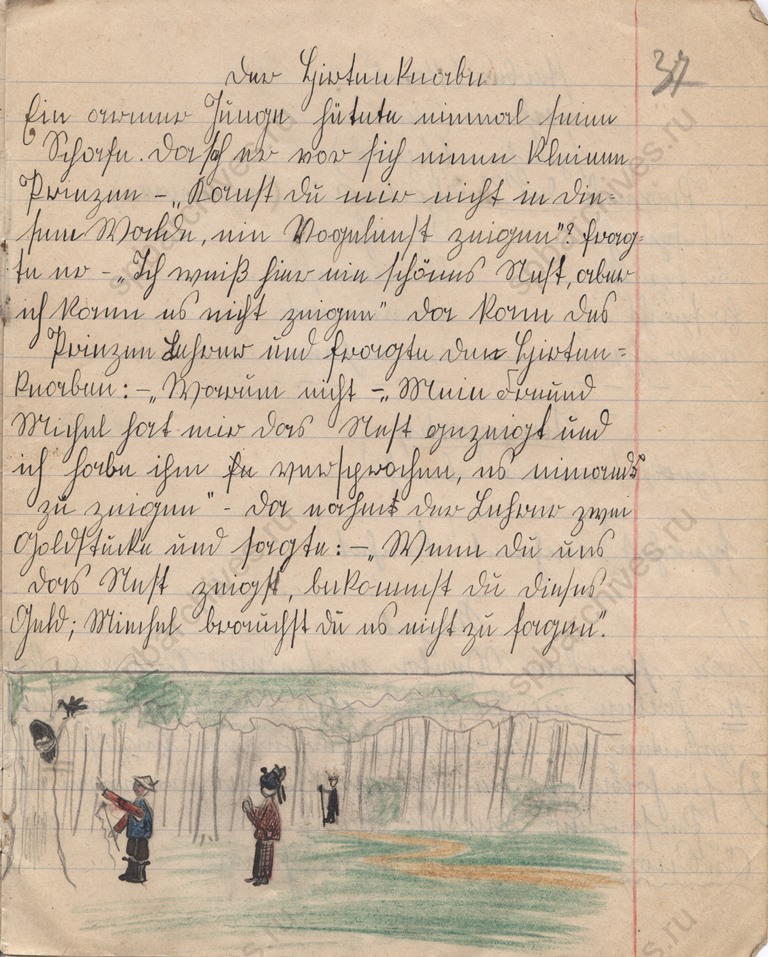 37
Der Hirtenknabe
Ein armer Junge hütete einmal seine
Schafe. Da sah er vor sich einen kleinen
Prinzen – „Kanst du mir nicht in die-
sem Walde, ein Vogelnest zeigen"? frag-
te er – „Ich weiß hier ein schönes Nest, aber
ich kann es nicht zeigen" Da kam des
Prinzen Lehrer und fragte den Hirten-
knaben: – „Warum nicht – „Mein Freund
Michel hat mir das Nest gezeigt und
ich habe ihm versprochen, es niemand
zu zeigen" - Da nahm der Lehrer zwei
Goldstücke und sagte: – „Wenn du uns
das Nest zeigst, bekommst du dieses
Geld; Miechel brauchst du es nicht zu sagen".
spbarchives.ru